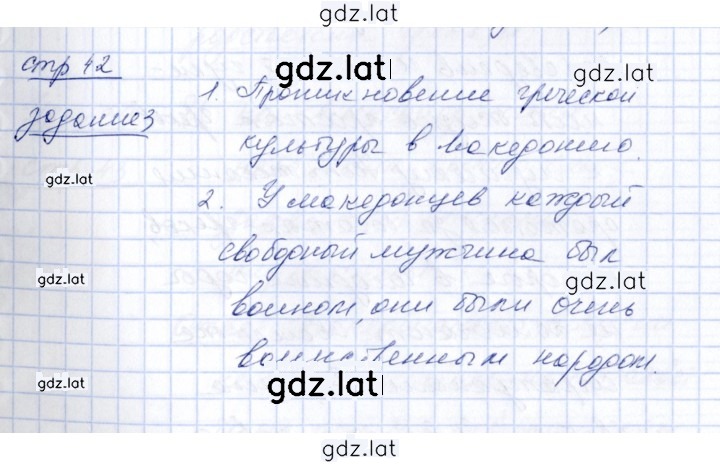 gdz.lat
стр 42
gdz.lat
gdz.lat
задание 3
1. Проникновение греческой
культуры в Македонию.
gdz.lat
gdz.lat
2. У македонцев каждый
свободный мужчина был
gdz.lat
gdz.lat
воином, они были очень
воинственным народом.
gdz.lat
gdz.lat
gdz.lat